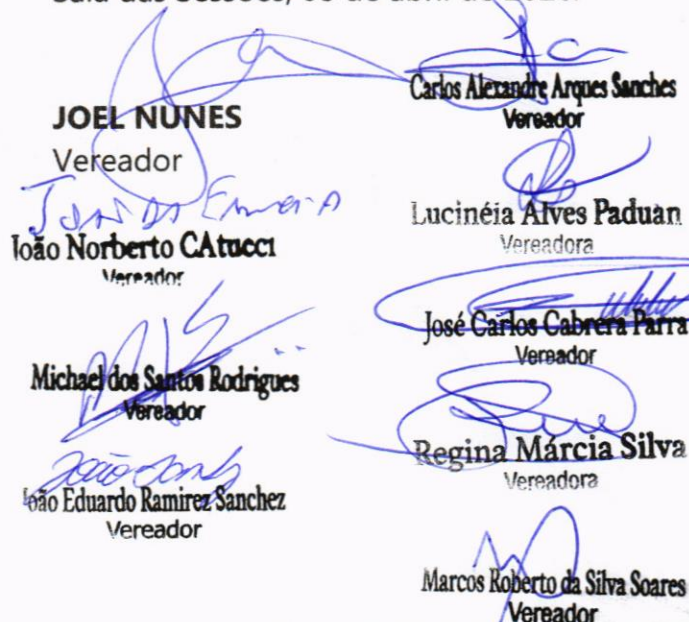 JOEL NUNES
Vereador
João Norberto CAtucci
Vereador
Michael dos Santos Rodrigues
Vereador
João Eduardo Ramirez Sanchez
Vereador
Carlos Alexandre Arques Sanches
Vereador
Lucinéia Alves Paduan
Vereadora
José Carlos Cabrera Parra
Vereador
Regina Márcia Silva
Vereadora
Marcos Roberto da Silva Soares
Vereador